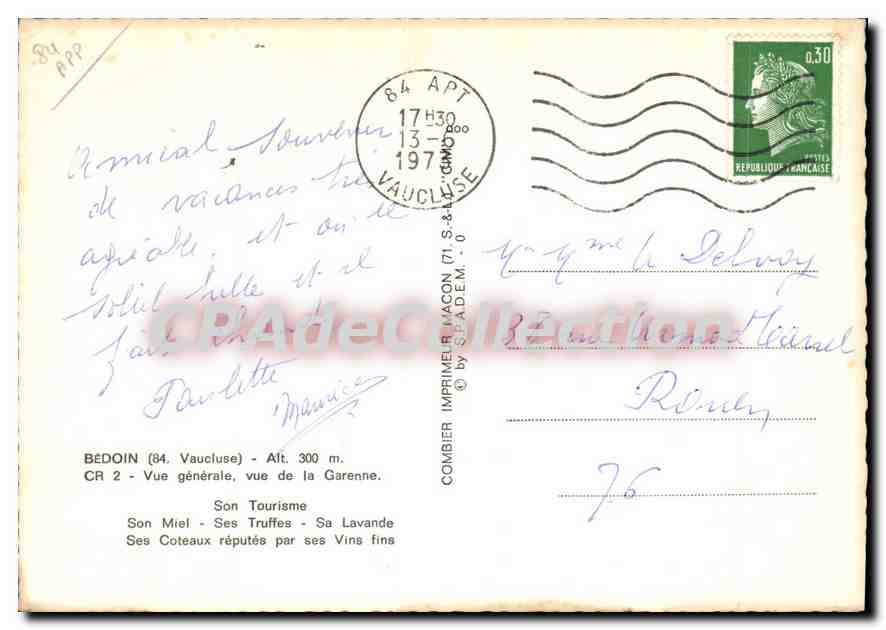 84
APP
84 APT
17H30
13-
197
VAUCLUSE
0,30
POSTES
REPUBLIQUE FRANÇAISE
Amical Souvenir
de vacances très
agréable, et où le
soleil brille et il
fait chaud
Paulette
Maurice
BEDOIN (84. Vaucluse) - Alt. 300 m.
CR 2 - Vue générale, vue de la Garenne.
Son Tourisme
Son Miel - Ses Truffes - Sa Lavande
Ses Coteaux réputés par ses Vins fins
COMBIER IMPRIMEUR MACON (71, S.-&-L.) "CIM"
© by S.P.A.D.E.M. - 0
Mr Mme Delvoy
32 rue
Rouen
76
CPAdeCollection